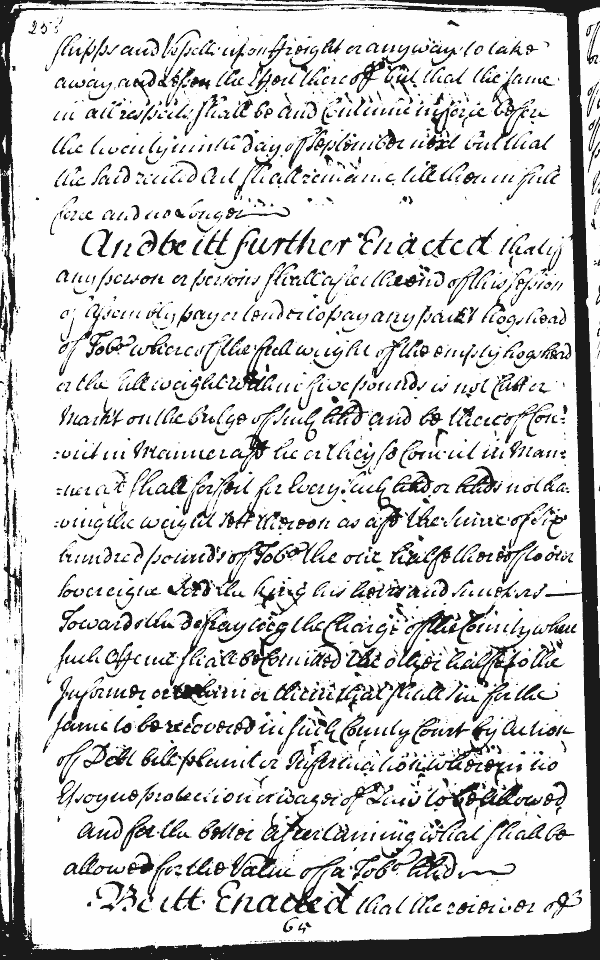 253
Shipps and Vessells upon ffreight or any way to take
away and lessen the effect thereof but that the same
in all respects shall be and Continue in force before
the twenty ninth day of September next but that
the said recited Act shall remaine till then in full
force and no longer
And be itt further Enacted that if
any person or persons shall after the end of this Session
of Assembly pay or tender to pay any packt hogshead
of Tobo whereof the full weight of the empty hogshead
or the full weight within five pounds is not Cutt or
Markt on the bulge of such hhd and be thereof Con:
:vict in Manner afd he or they so Convict in Man:
:ner afd shall forfeit for Every such hhd or hhds not ha:
:ving the weight sett thereon as afd the Sume of six
hundred pounds of Tobo the one halfe thereof to our
Sovereigne Lord the King his heirs and Successors
Towards the defraying the Charge of the County where
such Offence shall be Comitted the other halfe to the
Informer or to him or them that shall Sue for the
same to be recovered in such County Court by Action
of Debt bill plaint or Information wherein no
Essoyne protection or wager of Law to be allowed
And for the better ascertaining what shall be
allowed for the Value of a Tobo hhd
Be itt Enacted that the receiver of
64